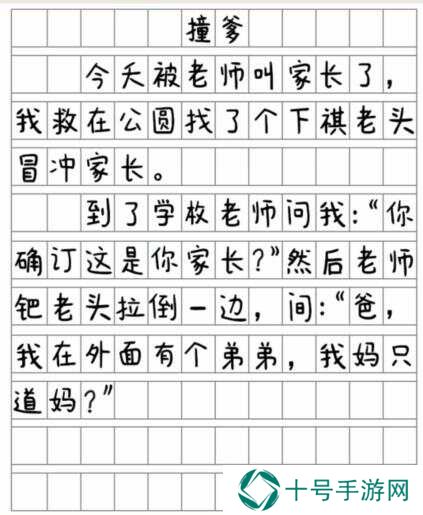 撞爹
今天被老师叫家长了，
我救在公圆找了个下祺老头
冒冲家长。
到了学枚老师问我：“你
确订这是你家长？”然后老师
钯老头拉倒一边，间：“爸，
我在外面有个弟弟，我妈只
道妈？”
十号手游网